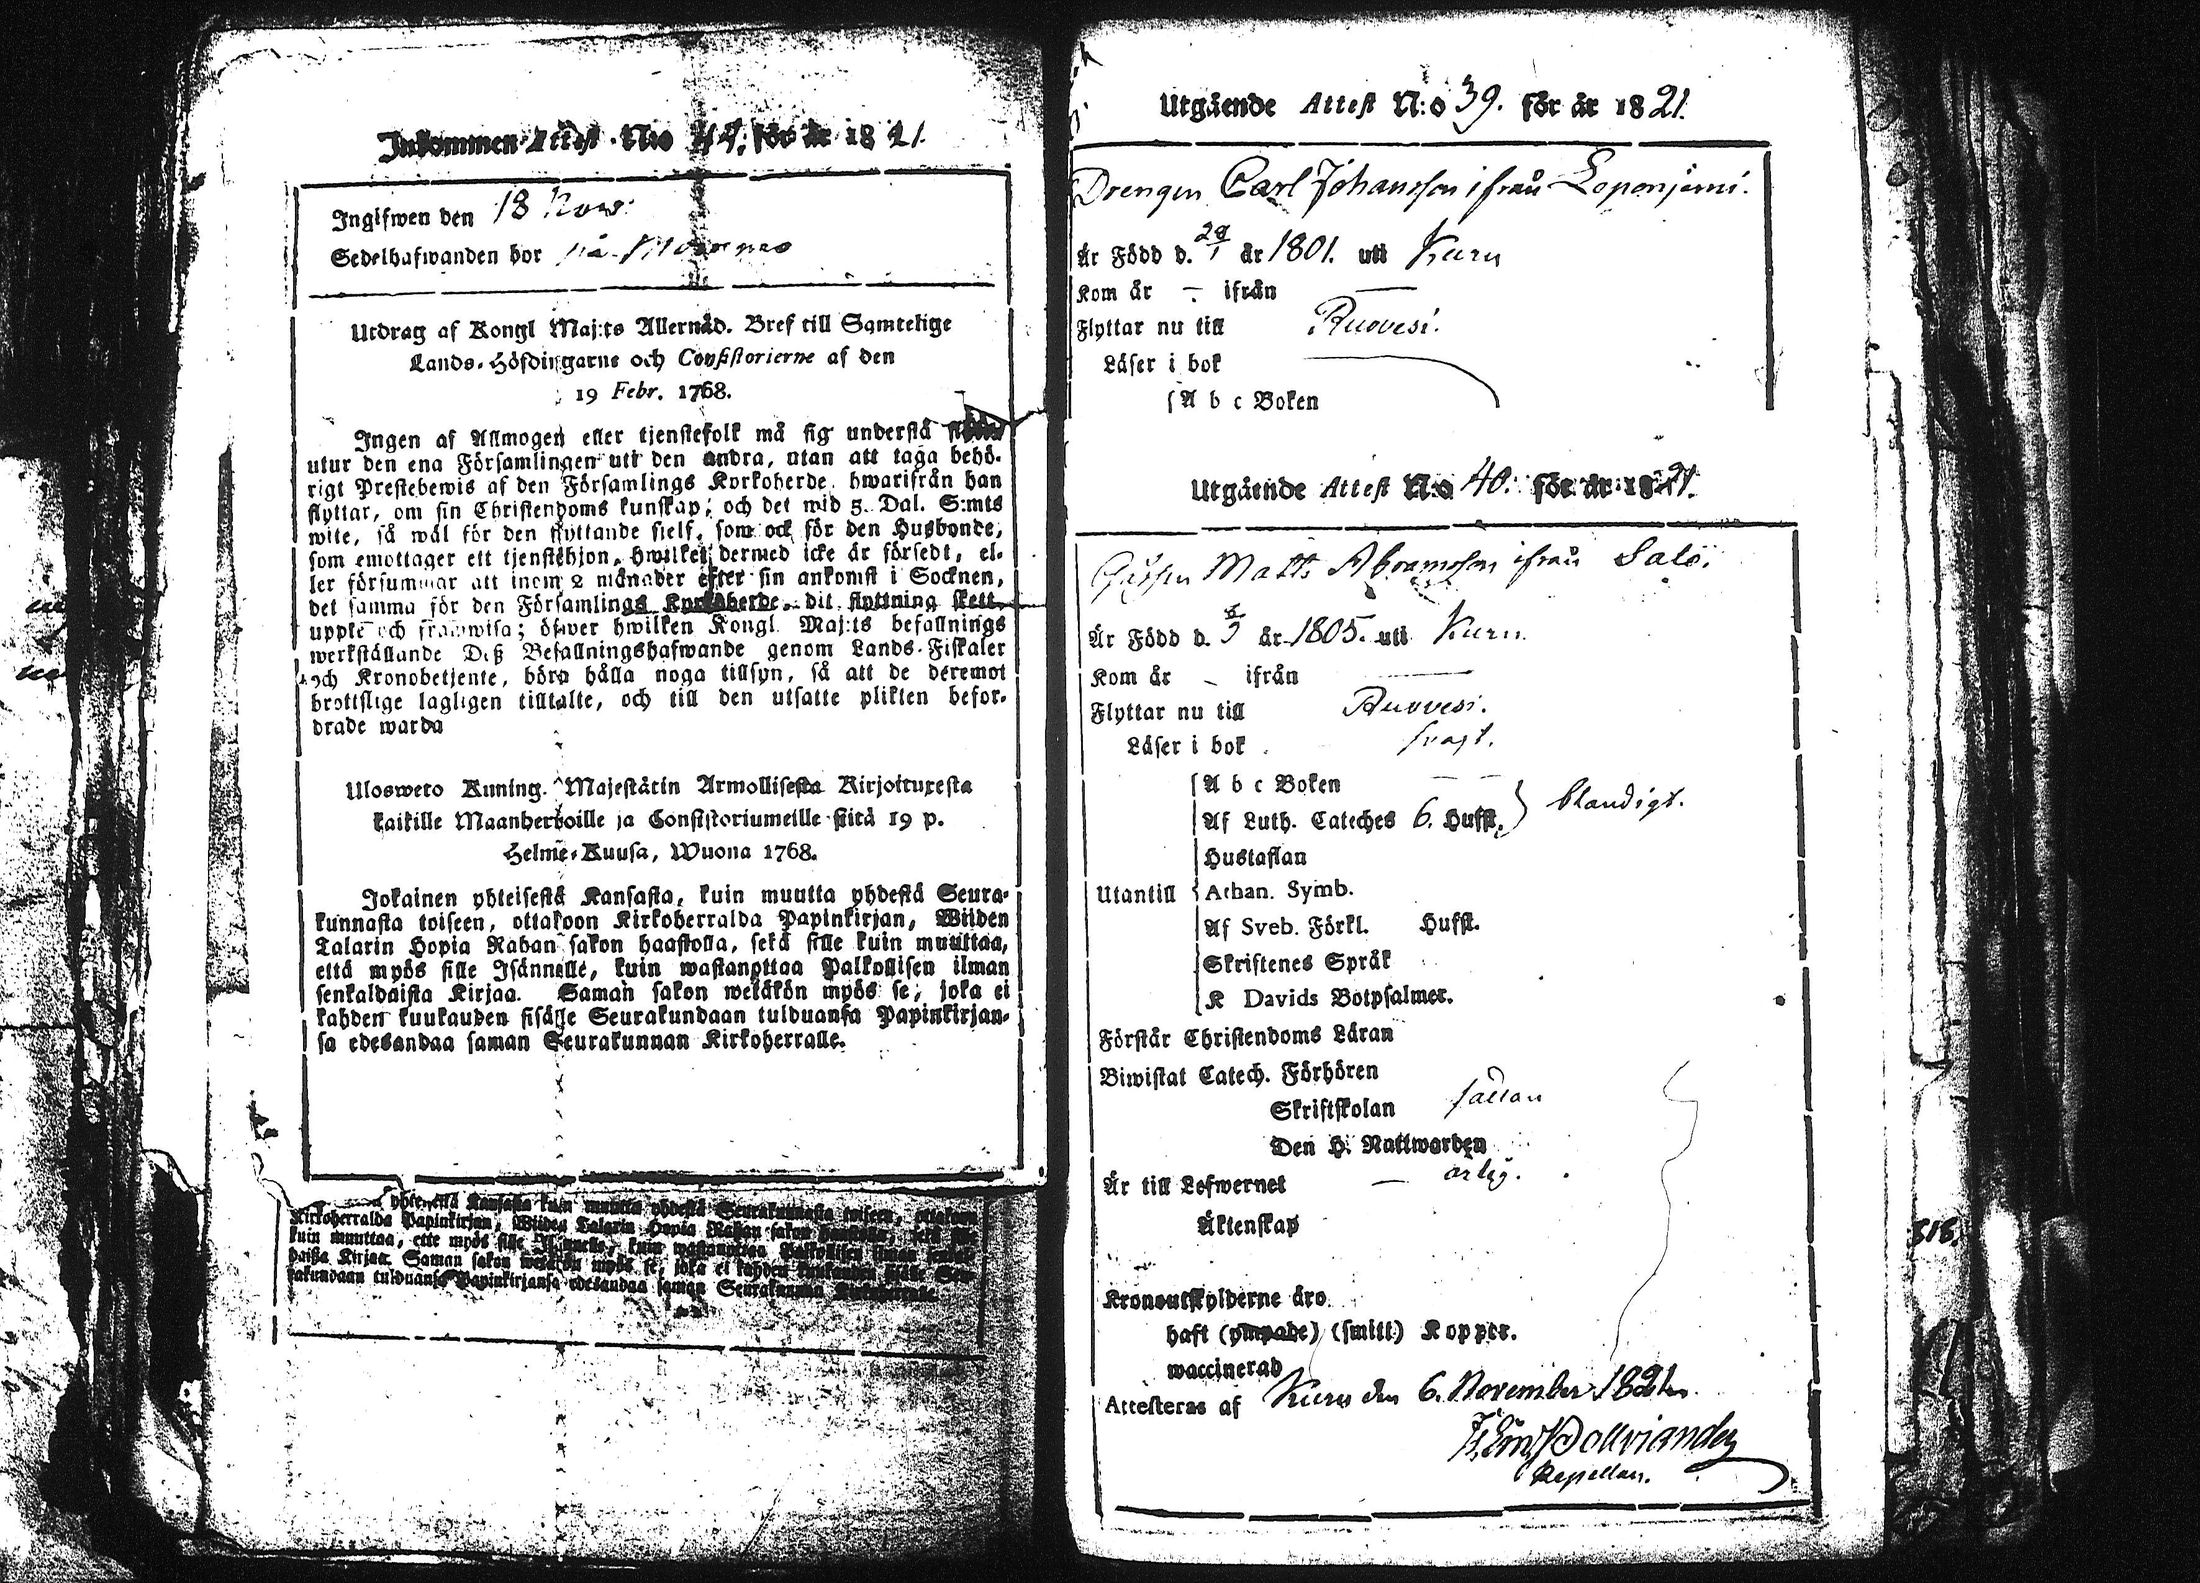 Inkommen Attest N:o 44. för år 1821.
Ingifwen den 18 Nov:
Sedelhafwanden bor på
Utdrag af Kongl Maj:ts Allernåd. Bref till Samtelige
Lands-Höfdingarne och Consistorierne af den
19 Febr. 1768.
Ingen af Allmogen eller tjenstefolk må sig understå
utur den ena Församlingen uti den andra, utan att taga behö-
rigt Prestebewis af den Församlings Kyrkoherde, hwarifrån han
flyttar, om sin Christendoms kunskap; och det wid 5. Dal. S:mts
wite, så wäl för den flyttande sielf, som ock för den Husbonde,
som emottager ett tjenstehjon, hwilket dermed icke är försedt, el-
ler försummar att inom 2 månader efter sin ankomst i Socknen,
det samma för den Församlings Kyrkoherde, dit flyttning skett,
uppte och framwisa; öfwer hwilken Kongl. Maj:ts befallnings
werkställande Deß Befallningshafwande genom Lands-Fiskaler
och Kronobetjente, böra hålla noga tillsyn, så att de deremot
brottslige lagligen tilltalte, och till den utsatte plikten befor-
drade warda
Ulosweto Kuning. Majestätin Armollisesta Kirjoituxesta
kaikille Maanherroille ja Consistoriumeille siitä 19 p.
Helme-Kuusa, Wuona 1768.
Jokainen yhteisestä Kansasta, kuin muutta yhdestä Seura-
kunnasta toiseen, ottakoon Kirkoherralda Papinkirjan, Wiiden
Talarin Hopia Rahan sakon haastolla, sekä sille kuin muuttaa,
että myös sille Isännelle, kuin wastanottaa Palkollisen ilman
senkaldaista Kirjaa. Saman sakon wetäkön myös se, joka ei
kahden kuukauden sisälle Seurakundaan tulduansa Papinkirjan-
sa edesandaa saman Seurakunnan Kirkoherralle.
yhteisestä Kansasta kuin muutta yhdestä Seurakunnasta toiseen, ottakoon
Kirkoherralda Papinkirjan, Wiiden Talarin Hopia Rahan sakon haastolla, sekä sille
kuin muuttaa, ette myös sille Isännelle, kuin wastanottaa Palkollisen ilman senkal-
daista Kirjaa. Saman sakon wetäkön myös se, joka ei kahden kuukauden sisälle Seu-
rakundaan tulduansa Papinkirjansa edesandaa saman Seurakunnan Kirkoherralle.
Utgående Attest N:o 39. för år 1821.
Drengen Carl Johansson ifrån Leponjemi.
Är Född d. 28/1 år 1801. uti Kuru
Kom år — ifrån —
Flyttar nu till Ruovesi.
Läser i bok
A b c Boken
Utgående Attest N:o 40. för år 1821.
Gåssen Matts Abramsson ifrån Salo.
Är Född d. år 1805. uti Kuru
Kom år — ifrån —
Flyttar nu till Ruovesi.
Läser i bok svagt.
A b c Boken — —
Af Luth. Cateches 6. Hufst. blandigt.
Hustaflan
Utantill Athan. Symb.
Af Sveb. Förkl. Hufst.
Skriftenes Språk
K Davids Botpsalmer.
Förstår Christendoms Läran
Biwistat Catech. Förhören
Skriftskolan sällan
Den H. Nattwarden
Är till Lefwernet — ärlig.
Äktenskap
Kronoutskylderne äro
haft (ympade) (smitt) Koppor.
waccinerad
Attesteras af Kuru den 6. November 1821.
Kapellan.
318.